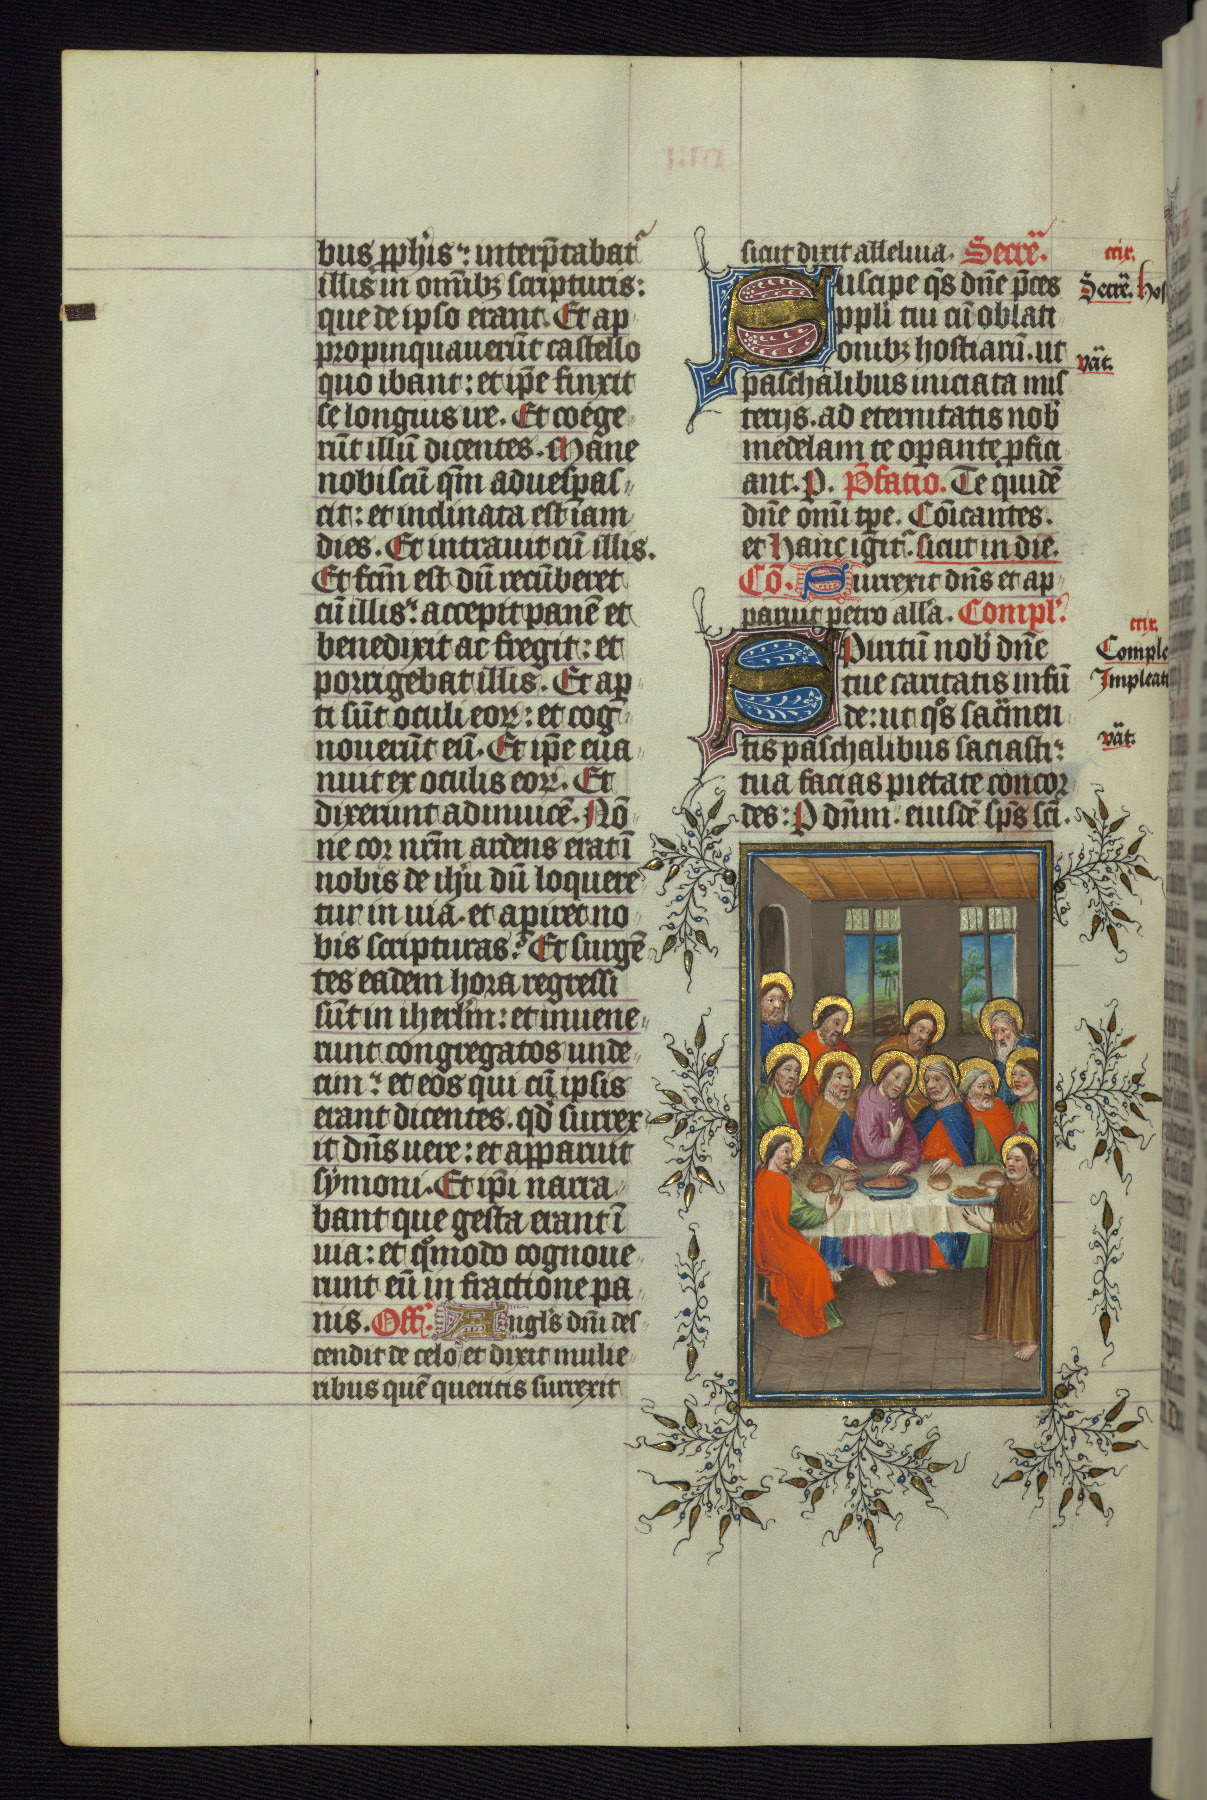 bus ꝓph̄is: interp̄tabat᷑
illis in om̄ibꝫ scripturis:
que de ipso erant. Et ap
propinquauerūt castello
quo ibant: et ip̄e finxit
se longius ire. Et coege
rūt illū dicentes. Mane
nobiscū qm̄ aduespas
cit: et inclinata est iam
dies. Et intrauit cū illis.
Et fcm̄ est dū recūberet
cū illis: accepit panē et
benedixit ac fregit: et
porrigebat illis. Et ap
ti sūt oculi eoꝝ: et cog
nouerūt eū. Et ip̄e eua
nuit ex oculis eoꝝ. Et
dixerunt adinuicē. Nō
ne cor nr̄m ardens erat ī
nobis de ih̄u dū loquere
tur in uia. et apiret no
bis scripturas? Et surgē
tes eadem hora regressi
sūt in iherlm̄: et inuene
runt congregatos unde
cim: et eos qui cū ipsis
erant dicentes. qd̓ surrex
it dn̄s uere: et apparuit
symoni. Et ip̄i narra
bant que gesta erant ī
uia: et qͦmodo cognoue
runt eū in fractione pa
nis. Off̄. Angl̄s dn̄i des
cendit de celo et dixit mulie
ribus quē queritis surrexit
sicut dixit alleluia. Secre᷑.
Suscipe qs̄ dn̄e p̄ces
ppl̄i tui cū oblati
onibꝫ hostiarū. ut
paschalibus iniciata mis
terijs. ad eternitatis nob̄
medelam te opante ꝓfici
ant. P. P̄fatio. Te quidē
dn̄e om̄i tp̄e. Cōicantes.
et Hanc igit᷑. sicut in die.
Cō. Surrexit dn̄s et ap
paruit petro all̄a. Compl̄.
Spiritū nob̄ dn̄e
tue caritatis infū
de: ut qͦs sac̄men
tis paschalibus saciasti:
tua facias pietate concor
des: P dn̄m. eiusdē sp̄s sc̄i.
ccix.
Secre᷑. Hos
vāt.
ccix.
Comple
Impleati
vāt.